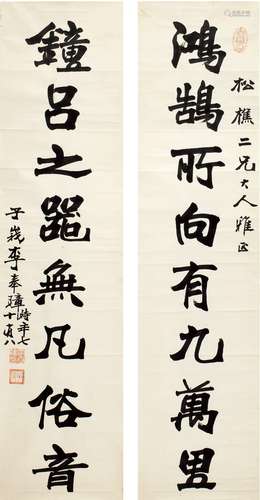 鴻鵠所向有九萬里
松樵二兄大人雅正
鐘呂之器無凡俗音
李奉璋時年七十有八